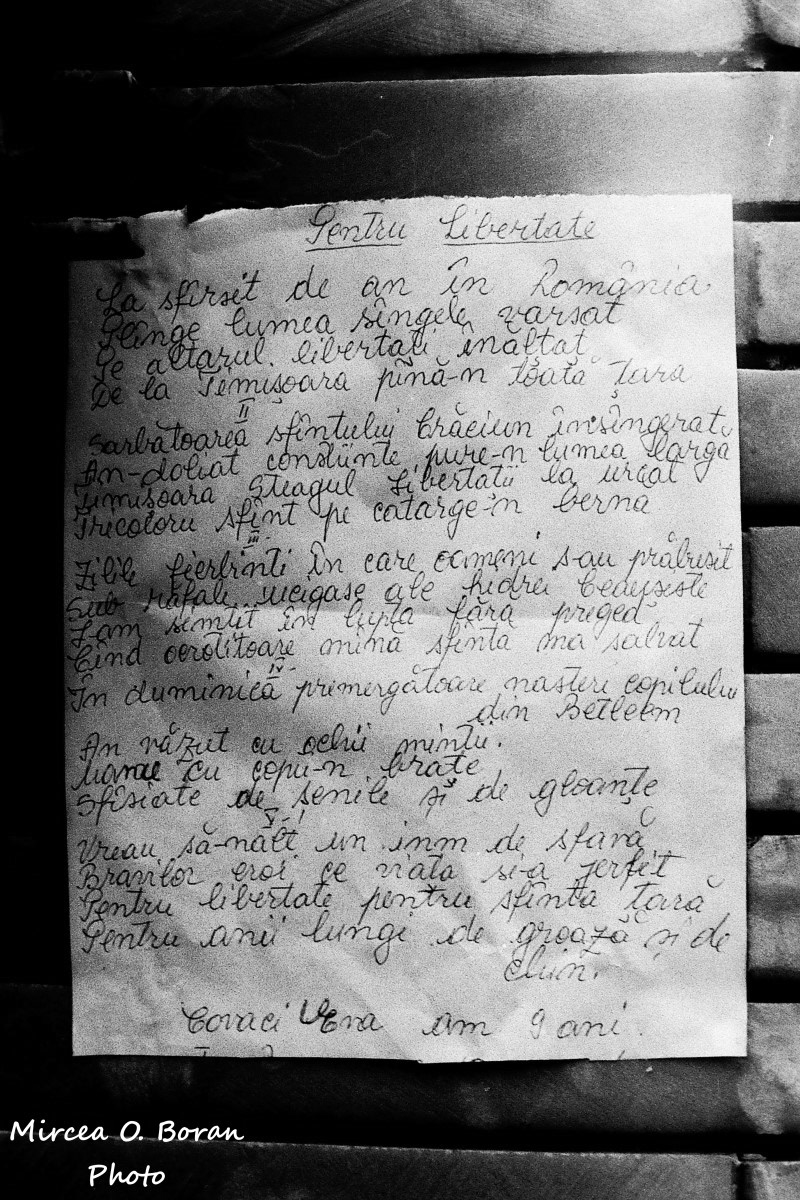 Pentru Libertate
La sfîrsit de an în România
Plînge lumea sîngele varsat
Pe altarul libertati înaltat
De la Temişoara pînă-n toată Ţara
II
Sarbătoarea sfîntului Crăciun însîngerat
An-doliat constiinte pure-n lumea largă
Timisoara Steagul Libertatii la urcat
Tricoloru sfînt pe catarge-n berna
III
Zilile fierbinti în care oameni s-au prăbusit
Sub rafale ucigase ale hidrei Ceausiste
L-am simtit în lupta fără preget
Cînd ocrotitoare mînă sfînta ma salvat
IV
În duminică premergătoare nasteri copilului
din Betleem
Am văzut cu ochii mintii.
Mame cu copii-n brate
Sfîsiate de senile şi de gloanţe
V
Vreau să-nalt un imn de slavă
Bravilor eroi ce viata si-a jerfit
Pentru libertate pentru sfînta Tară
Pentru anii lungi de groază si de
chin.
Covaci Ena am 9 ani.
Mircea O. Boran
Photo